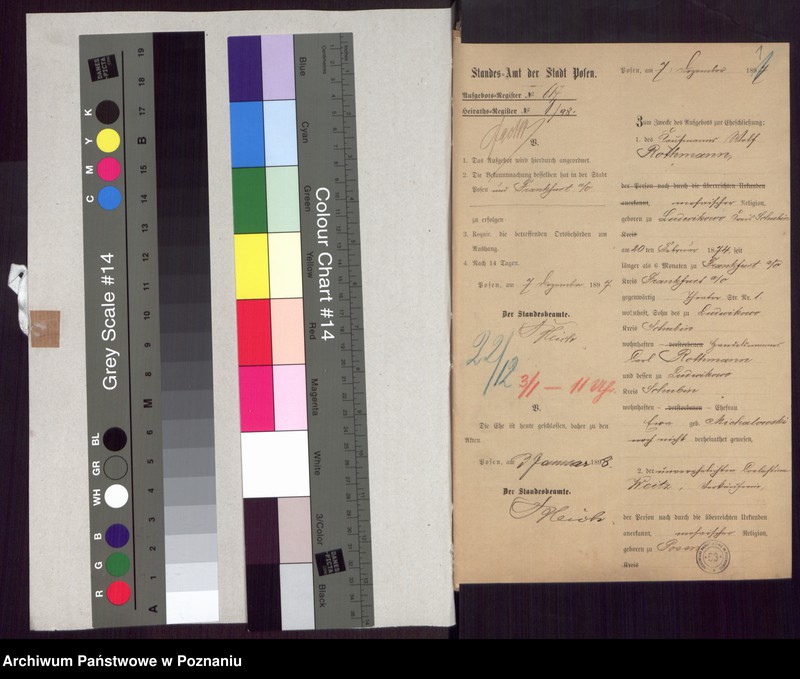 Grey Scale #14
C M Y K
R G B WH GR BL
A 1 2 3 4 5 6 M 8 9 10 11 12 13 14 15 B 17 18 19
DANES PICTA
Colour Chart #14
Blue
Cyan
Green
Yellow
Red
Magenta
White
3/Color
Black
DANES PICTA
Standes-Amt der Stadt Posen.
Aufgebots-Register №
Heiraths-Register №
V.
1. Das Aufgebot wird hierdurch angeordnet.
2. Die Bekanntmachung desselben hat in der Stadt
Posen und Frankfurt a/O
zu erfolgen
3. Gegen die betreffenden Ortsbehörden um
Aushang.
4. Nach 14 Tagen.
Posen, am 7 Dezember 1897
Der Standesbeamte.
22/12
3/1 — 11 Uhr.
V.
Die Ehe ist heute geschlossen, daher zu den
Akten.
Posen, am 3 Januar 1898
Der Standesbeamte.
Posen, am 7 Dezember 1897
Zum Zwecke des Aufgebots zur Eheschließung:
1. der Kaufmann Wolf
Rothmann,
der Person nach durch die überreichten Urkunden
anerkannt, mosaischer Religion,
geboren zu Ludwikowo
Kreis
am 20 ten Februar 1874, seit
länger als 6 Monaten zu Frankfurt a/O
Kreis Frankfurt a/O
gegenwärtig Str. Nr. 1.
wohnhaft, Sohn des zu Ludwikowo
Kreis Schubin
wohnhaften – verstorbenen Handelsmann
Carl Rothmann
und dessen zu Ludwikowo
Kreis Schubin
wohnhaften – verstorbenen – Ehefrau
geb. Michalowski
noch nicht verheirathet gewesen,
2. der unverehelichten
Weitz, Verkäuferin,
der Person nach durch die überreichten Urkunden
anerkannt, mosaischer Religion,
geboren zu Posen
Kreis
63
Archiwum Państwowe w Poznaniu